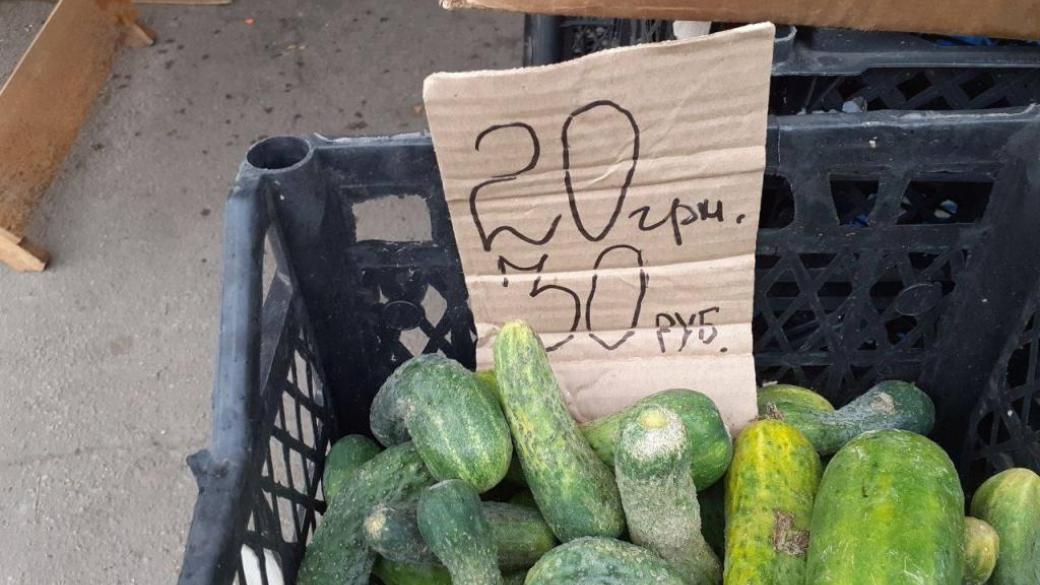 20 грн.
30 руб.